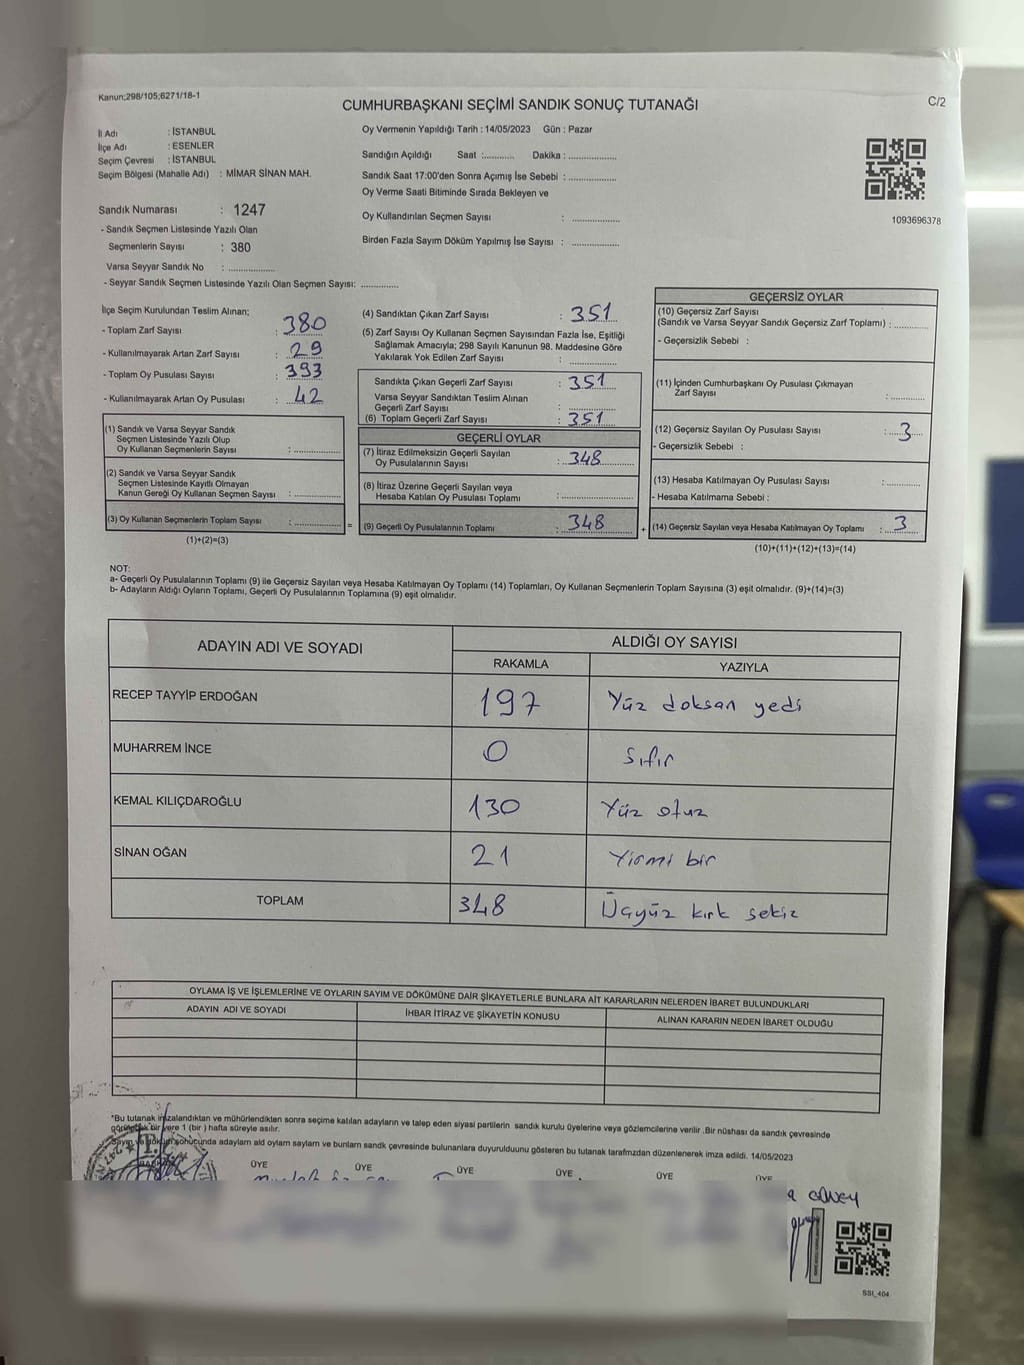 Kanun;298/105;6271/18-1
CUMHURBAŞKANI SEÇİMİ SANDIK SONUÇ TUTANAĞI
C/2
İl Adı : İSTANBUL
İlçe Adı : ESENLER
Seçim Çevresi : İSTANBUL
Seçim Bölgesi (Mahalle Adı) : MİMAR SİNAN MAH.
Sandık Numarası : 1247
- Sandık Seçmen Listesinde Yazılı Olan
Seçmenlerin Sayısı : 380
Varsa Seyyar Sandık No : ..............
- Seyyar Sandık Seçmen Listesinde Yazılı Olan Seçmen Sayısı: ............
Oy Vermenin Yapıldığı Tarih : 14/05/2023 Gün : Pazar
Sandığın Açıldığı Saat :.......... Dakika : ...............
Sandık Saat 17:00'den Sonra Açımış İse Sebebi : ...............
Oy Verme Saati Bitiminde Sırada Bekleyen ve
Oy Kullandırılan Seçmen Sayısı : ...............
Birden Fazla Sayım Döküm Yapılmış İse Sayısı : ...............
1093696378
İlçe Seçim Kurulundan Teslim Alınan;
- Toplam Zarf Sayısı : 380
- Kullanılmayarak Artan Zarf Sayısı : 29
- Toplam Oy Pusulası Sayısı : 393
- Kullanılmayarak Artan Oy Pusulası : 42
(1) Sandık ve Varsa Seyyar Sandık
Seçmen Listesinde Yazılı Olup
Oy Kullanan Seçmenlerin Sayısı : ...............
(2) Sandık ve Varsa Seyyar Sandık
Seçmen Listesinde Kayıtlı Olmayan
Kanun Gereği Oy Kullanan Seçmen Sayısı : ...............
(3) Oy Kullanan Seçmenlerin Toplam Sayısı : ............... =
(1)+(2)=(3)
(4) Sandıktan Çıkan Zarf Sayısı : 351
(5) Zarf Sayısı Oy Kullanan Seçmen Sayısından Fazla İse, Eşitliği
Sağlamak Amacıyla; 298 Sayılı Kanunun 98. Maddesine Göre
Yakılarak Yok Edilen Zarf Sayısı : ...............
Sandıkta Çıkan Geçerli Zarf Sayısı : 351
Varsa Seyyar Sandıktan Teslim Alınan
Geçerli Zarf Sayısı : ...............
(6) Toplam Geçerli Zarf Sayısı : 351
GEÇERLİ OYLAR
(7) İtiraz Edilmeksizin Geçerli Sayılan
Oy Pusulalarının Sayısı : 348
(8) İtiraz Üzerine Geçerli Sayılan veya
Hesaba Katılan Oy Pusulası Toplamı : ...............
(9) Geçerli Oy Pusulalarının Toplamı : 348 +
GEÇERSİZ OYLAR
(10) Geçersiz Zarf Sayısı
(Sandık ve Varsa Seyyar Sandık Geçersiz Zarf Toplamı) : ..........
- Geçersizlik Sebebi :
(11) İçinden Cumhurbaşkanı Oy Pusulası Çıkmayan
Zarf Sayısı : ..........
(12) Geçersiz Sayılan Oy Pusulası Sayısı : 3
- Geçersizlik Sebebi :
(13) Hesaba Katılmayan Oy Pusulası Sayısı : ..........
- Hesaba Katılmama Sebebi :
(14) Geçersiz Sayılan veya Hesaba Katılmayan Oy Toplamı : 3
(10)+(11)+(12)+(13)=(14)
NOT:
a- Geçerli Oy Pusulalarının Toplamı (9) ile Geçersiz Sayılan veya Hesaba Katılmayan Oy Toplamı (14) Toplamları, Oy Kullanan Seçmenlerin Toplam Sayısına (3) eşit olmalıdır. (9)+(14)=(3)
b- Adayların Aldığı Oyların Toplamı, Geçerli Oy Pusulalarının Toplamına (9) eşit olmalıdır.
ADAYIN ADI VE SOYADI ALDIĞI OY SAYISI
RAKAMLA YAZIYLA
RECEP TAYYİP ERDOĞAN 197 Yüz doksan yedi
MUHARREM İNCE 0 Sıfır
KEMAL KILIÇDAROĞLU 130 Yüz otuz
SİNAN OĞAN 21 Yirmi bir
TOPLAM 348 Üçyüz kırk sekiz
OYLAMA İŞ VE İŞLEMLERİNE VE OYLARIN SAYIM VE DÖKÜMÜNE DAİR ŞİKAYETLERLE BUNLARA AİT KARARLARIN NELERDEN İBARET BULUNDUKLARI
ADAYIN ADI VE SOYADI İHBAR İTİRAZ VE ŞİKAYETİN KONUSU ALINAN KARARIN NEDEN İBARET OLDUĞU
*Bu tutanak imzalandıktan ve mühürlendikten sonra seçime katılan adayların ve talep eden siyasi partilerin sandık kurulu üyelerine veya gözlemcilerine verilir .Bir nüshası da sandık çevresinde
bir yere 1 (bir ) hafta süreyle asılır.
adayların ald oyların sayların ve bunların sandk çevresinde bulunanlara duyurulduunu gösteren bu tutanak tarafmzdan düzenlenerek imza edildi. 14/05/2023
ÜYE ÜYE ÜYE ÜYE ÜYE ÜYE
GÜNEY
SSI_404